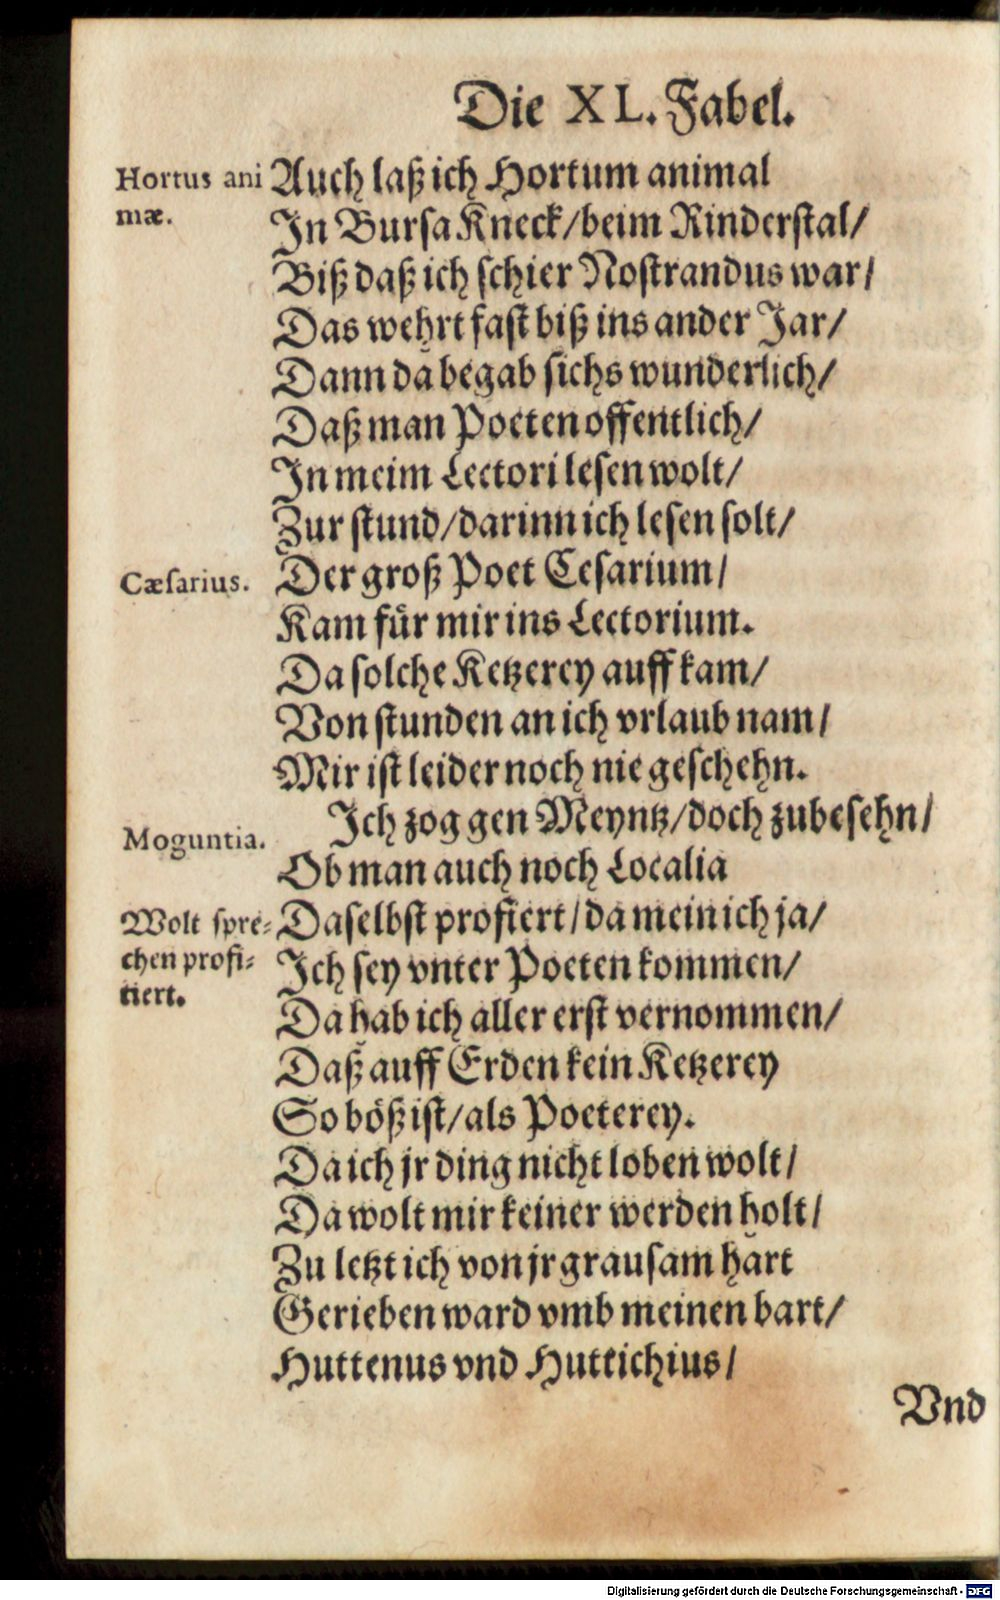 Die XL. Fabel.
Hortus ani
mæ.
Auch laß ich Hortum animal
In Bursa Kneck/beim Rinderstal/
Biß daß ich schier Nostrandus war/
Das wehrt fast biß ins ander Jar/
Dann da begab sichs wunderlich/
Daß man Poeten offentlich/
In meim Lectori lesen wolt/
Zur stund/darinn ich lesen solt/
Cæsarius.
Der groß Poet Cesarium/
Kam für mir ins Lectorium.
Da solche Ketzerey auff kam/
Von stunden an ich vrlaub nam/
Mir ist leider noch nie geschehn.
Ich zog gen Meyntz/doch zubesehn/
Moguntia.
Ob man auch noch Localia
Wolt spre-
chen profi-
tiert.
Daselbst profiert/da mein ich ja/
Ich sey vnter Poeten kommen/
Da hab ich aller erst vernommen/
Daß auff Erden kein Ketzerey
So böß ist/als Poeterey.
Da ich jr ding nicht loben wolt/
Da wolt mir keiner werden holt/
Zu letzt ich von jr grausam hart
Gerieben ward vmb meinen bart/
Huttenus vnd Huttichius/
Vnd
Digitalisierung gefördert durch die Deutsche Forschungsgemeinschaft - DFG